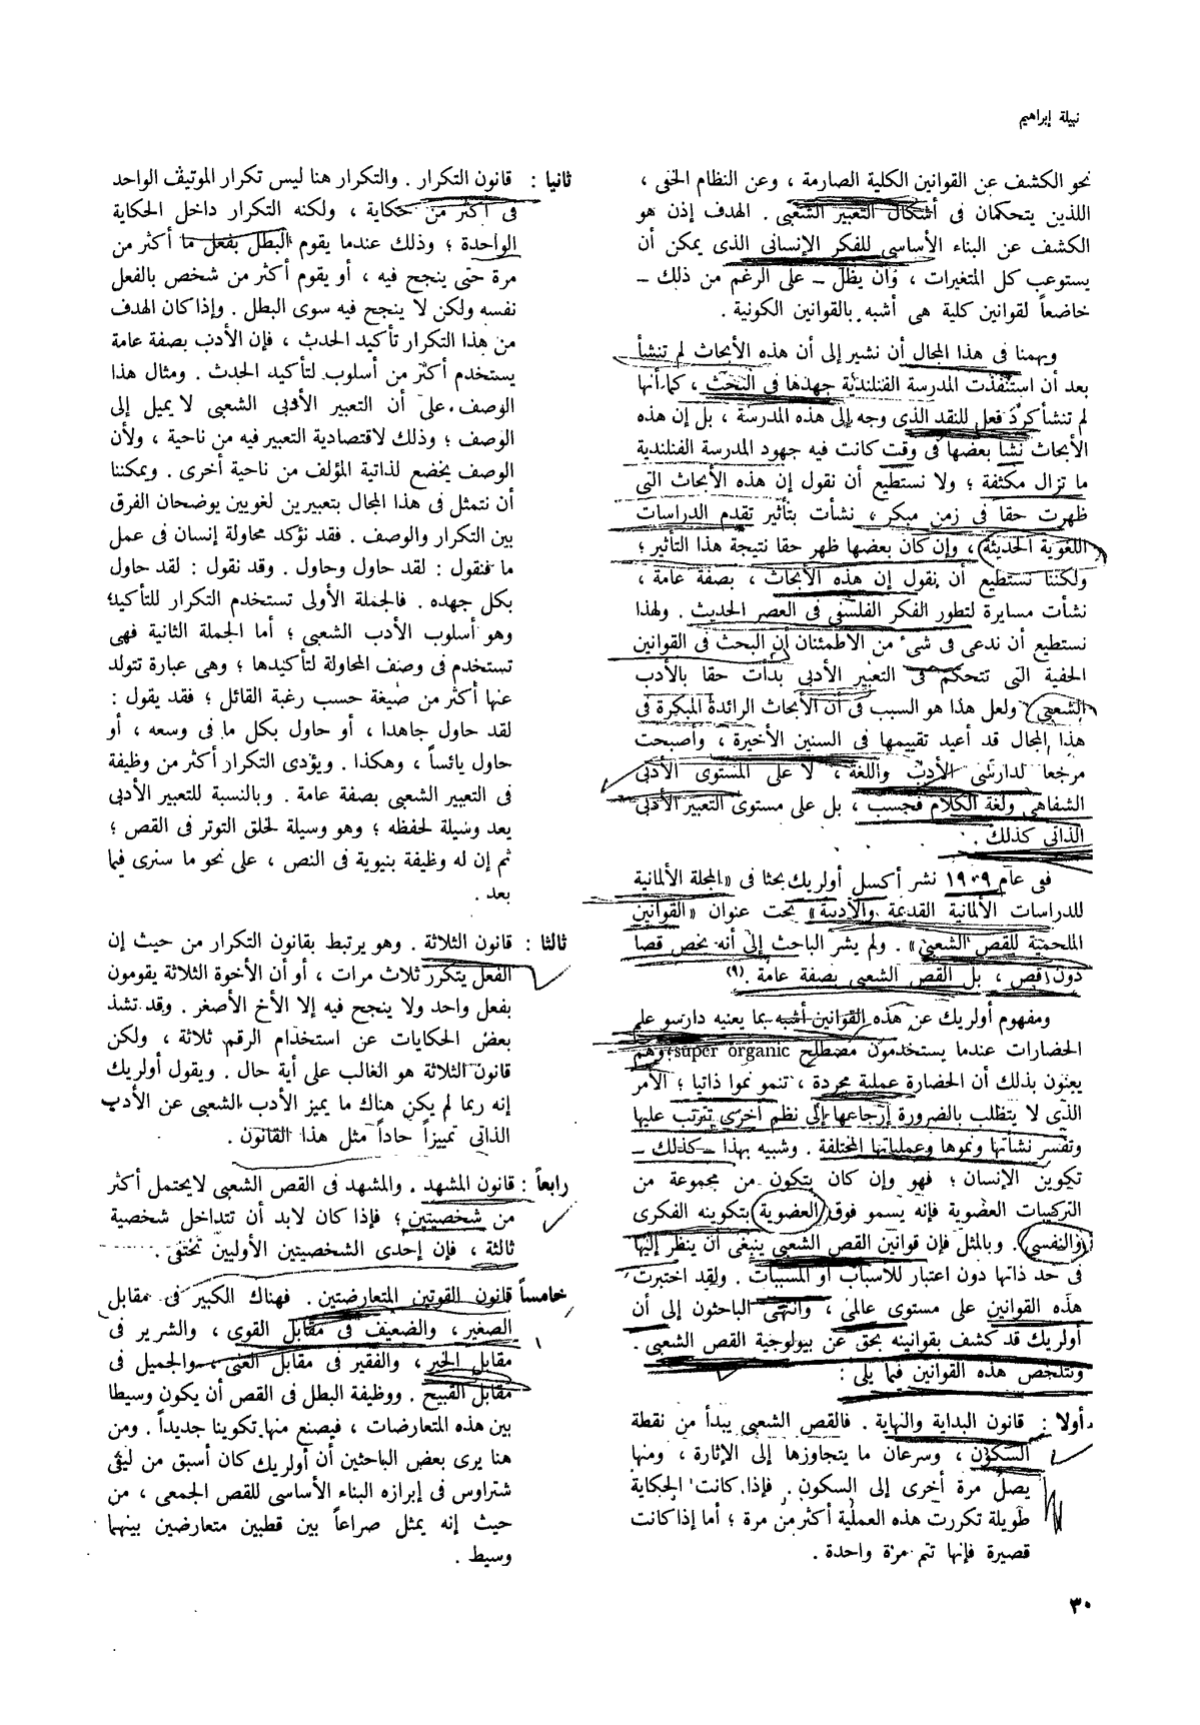 نبيلة إبراهيم
نحو الكشف عن القوانين الكلية الصارمة ، وعن النظام الخفى ،
اللذين يتحكمان فى أشكال التعبير الشعبى . الهدف إذن هو
الكشف عن البناء الأساسى للفكر الإنسانى الذى يمكن أن
يستوعب كل المتغيرات ، وأن يظل – على الرغم من ذلك –
خاضعاً لقوانين كلية هى أشبه بالقوانين الكونية .
ويهمنا فى هذا المجال أن نشير إلى أن هذه الأبحاث لم تنشأ
بعد أن استنفدت المدرسة الفنلندية جهدها فى البحث ، كما أنها
لم تنشأ كرد فعل للنقد الذى وجه إلى هذه المدرسة ، بل إن هذه
الأبحاث نشأ بعضها فى وقت كانت فيه جهود المدرسة الفنلندية
ما تزال مكثفة ؛ ولا نستطيع أن نقول إن هذه الأبحاث التى
ظهرت حقا فى زمن مبكر ، نشأت بتأثير تقدم الدراسات
اللغوية الحديثة ، وإن كان بعضها ظهر حقا نتيجة هذا التأثير ؛
ولكننا نستطيع أن نقول إن هذه الأبحاث ، بصفة عامة ،
نشأت مسايرة لتطور الفكر الفلسفى فى العصر الحديث . ولهذا
نستطيع أن ندعى فى شىء من الاطمئنان أن البحث فى القوانين
الخفية التى تتحكم فى التعبير الأدبى بدأت حقا بالأدب
الشعبى ولعل هذا هو السبب فى أن الأبحاث الرائدة المبكرة فى
هذا المجال قد أعيد تقييمها فى السنين الأخيرة ، وأصبحت
مرجعا لدارسى الأدب واللغة ، لا على المستوى الأدبى
الشفاهى ولغة الكلام فحسب ، بل على مستوى التعبير الأدبى
الذاتى كذلك .
فى عام ١٩٠٩ نشر أكسل أولريك بحثا فى «المجلة الألمانية
للدراسات الألمانية القديمة والأدبية» تحت عنوان «القوانين
الملحمية للقص الشعبى» . ولم يشر الباحث إلى أنه يخص قصا
دون قص ، بل القص الشعبى بصفة عامة . (٩)
ومفهوم أولريك عن هذه القوانين أشبه بما يعنيه دارسو علم
الحضارات عندما يستخدمون مصطلح super organic ، وهم
يعنون بذلك أن الحضارة عملية مجردة ، تنمو نموا ذاتيا ؛ الأمر
الذى لا يتطلب بالضرورة إرجاعها إلى نظم أخرى تترتب عليها
وتفسر نشأتها ونموها وعملياتها المختلفة . وشبيه بهذا – كذلك –
تكوين الإنسان ؛ فهو وإن كان يتكون من مجموعة من
التركيبات العضوية فإنه يسمو فوق العضوية بتكوينه الفكرى
والنفسى . وبالمثل فإن قوانين القص الشعبى ينبغى أن ينظر إليها
فى حد ذاتها دون اعتبار للأسباب أو المسببات . ولقد اختبرت
هذه القوانين على مستوى عالمى ، وانتهى الباحثون إلى أن
أولريك قد كشف بقوانينه بحق عن بيولوجية القص الشعبى .
وتتلخص هذه القوانين فيما يلى :
أولا : قانون البداية والنهاية . فالقص الشعبى يبدأ من نقطة
السكون ، وسرعان ما يتجاوزها إلى الإثارة ، ومنها
يصل مرة أخرى إلى السكون . فإذا كانت الحكاية
طويلة تكررت هذه العملية أكثر من مرة ؛ أما إذا كانت
قصيرة فإنها تتم مرة واحدة .
ثانيا : قانون التكرار . والتكرار هنا ليس تكرار الموتيف الواحد
فى أكثر من حكاية ، ولكنه التكرار داخل الحكاية
الواحدة ؛ وذلك عندما يقوم البطل بفعل ما أكثر من
مرة حتى ينجح فيه ، أو يقوم أكثر من شخص بالفعل
نفسه ولكن لا ينجح فيه سوى البطل . وإذا كان الهدف
من هذا التكرار تأكيد الحدث ، فإن الأدب بصفة عامة
يستخدم أكثر من أسلوب لتأكيد الحدث . ومثال هذا
الوصف . على أن التعبير الأدبى الشعبى لا يميل إلى
الوصف ؛ وذلك لاقتصادية التعبير فيه من ناحية ، ولأن
الوصف يخضع لذاتية المؤلف من ناحية أخرى . ويمكننا
أن نتمثل فى هذا المجال بتعبيرين لغويين يوضحان الفرق
بين التكرار والوصف . فقد نؤكد محاولة إنسان فى عمل
ما فنقول : لقد حاول وحاول . وقد نقول : لقد حاول
بكل جهده . فالجملة الأولى تستخدم التكرار للتأكيد؛
وهو أسلوب الأدب الشعبى ؛ أما الجملة الثانية فهى
تستخدم فى وصف المحاولة لتأكيدها ؛ وهى عبارة تتولد
عنها أكثر من صيغة حسب رغبة القائل ؛ فقد يقول :
لقد حاول جاهدا ، أو حاول بكل ما فى وسعه ، أو
حاول يائساً ، وهكذا . ويؤدى التكرار أكثر من وظيفة
فى التعبير الشعبى بصفة عامة . وبالنسبة للتعبير الأدبى
يعد وسيلة لحفظه ؛ وهو وسيلة لخلق التوتر فى القص ؛
ثم إن له وظيفة بنيوية فى النص ، على نحو ما سنرى فيما
بعد .
ثالثا : قانون الثلاثة . وهو يرتبط بقانون التكرار من حيث إن
الفعل يتكرر ثلاث مرات ، أو أن الأخوة الثلاثة يقومون
بفعل واحد ولا ينجح فيه إلا الأخ الأصغر . وقد تشذ
بعض الحكايات عن استخدام الرقم ثلاثة ، ولكن
قانون الثلاثة هو الغالب على أية حال . ويقول أولريك
إنه ربما لم يكن هناك ما يميز الأدب الشعبى عن الأدب
الذاتى تمييزاً حاداً مثل هذا القانون .
رابعاً : قانون المشهد . والمشهد فى القص الشعبى لا يحتمل أكثر
من شخصيتين ؛ فإذا كان لابد أن تتداخل شخصية
ثالثة ، فإن إحدى الشخصيتين الأوليين تختفى .
خامساً قانون القوتين المتعارضتين . فهناك الكبير فى مقابل
الصغير ، والضعيف فى مقابل القوى ، والشرير فى
مقابل الخير ، والفقير فى مقابل الغنى ، والجميل فى
مقابل القبيح . ووظيفة البطل فى القص أن يكون وسيطا
بين هذه المتعارضات ، فيصنع منها تكوينا جديداً . ومن
هنا يرى بعض الباحثين أن أولريك كان أسبق من ليفى
شتراوس فى إبرازه البناء الأساسى للقص الجمعى ، من
حيث إنه يمثل صراعاً بين قطبين متعارضين بينهما
وسيط .
٣٠